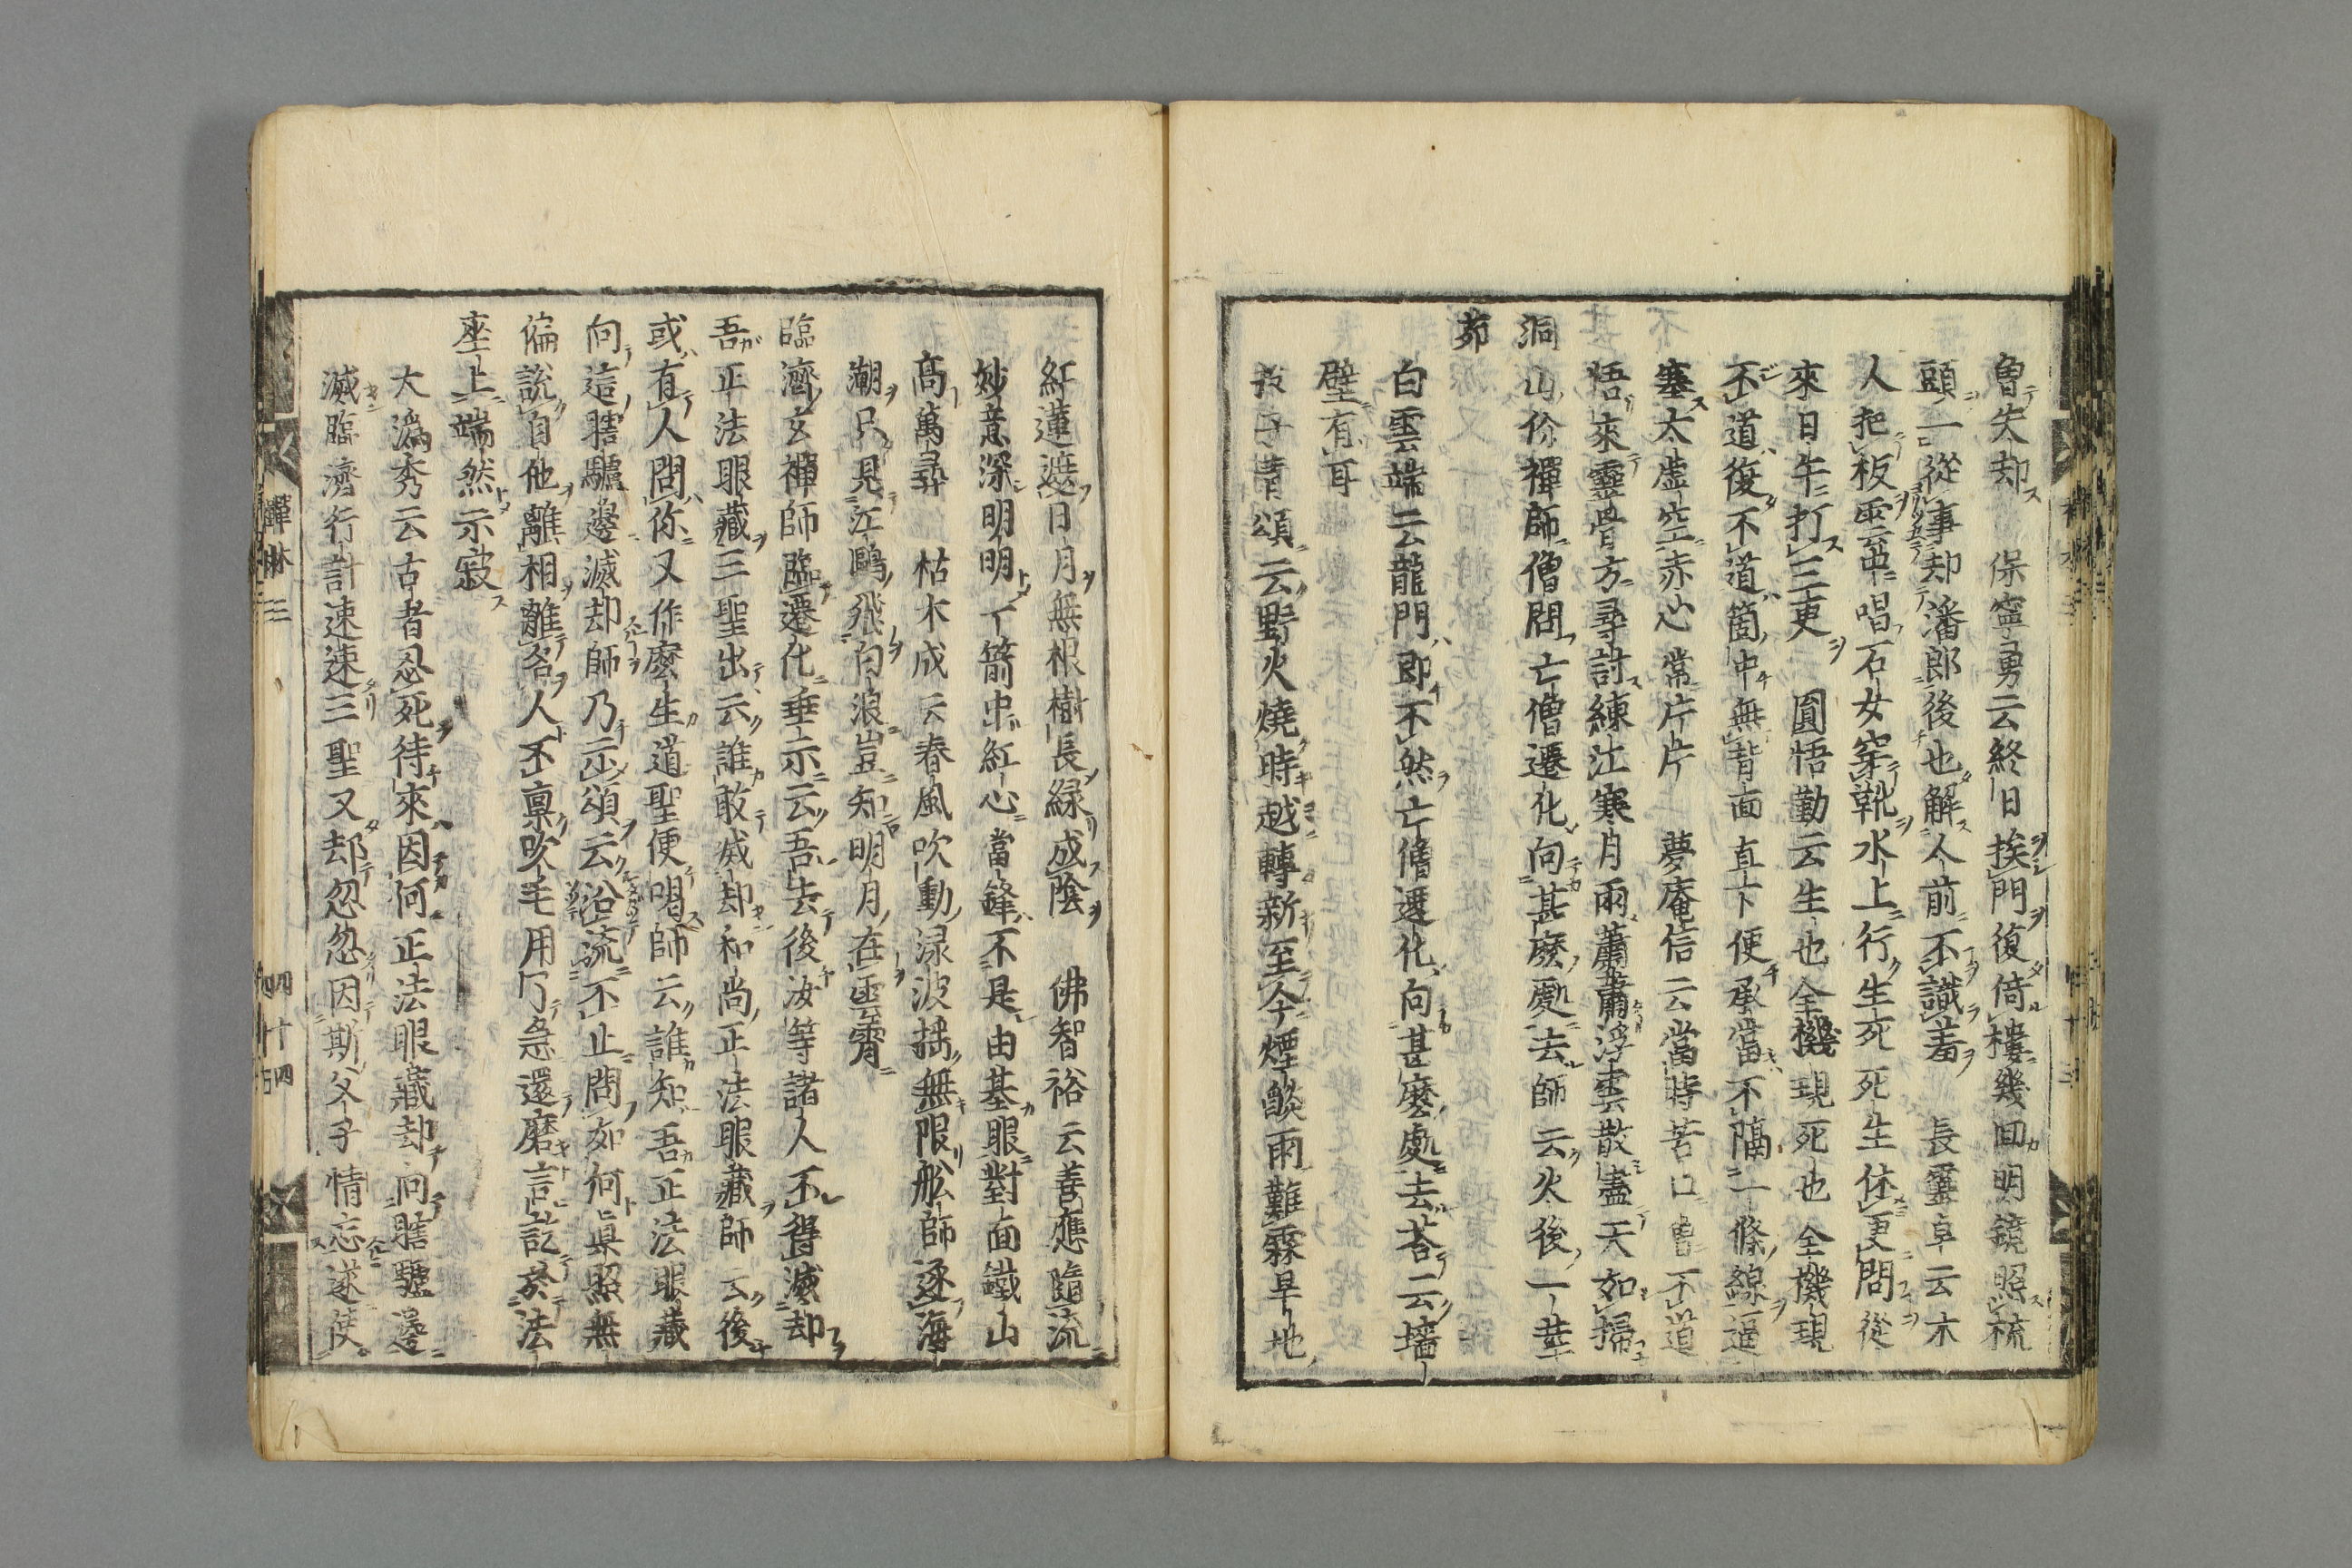 魯失却 保寧勇云終日挨門復倚樓幾回明鏡照梳
頭一從事却潘郎後也解人前不識羞 長靈卓云木
人把板雲中唱石女穿靴水上行生死死生休更問從
來日午打三更 圓悟勤云生也全機現死也全機現
不道復不道箇中無背面直下便承當不隔一條線逼
塞太虛空赤心常片片 夢庵信云當時苦口曾不道
悟來靈骨方尋討練江寒月雨蕭蕭浮雲散盡天如掃
洞山价禪師僧問亡僧遷化向甚麼處去師云火後一莖
茆
白雲端云龍門即不然亡僧遷化向甚麼處去荅云墻
壁有耳
投子青頌云野火燒時越轉新至今煙燄雨難霖旱地
紅蓮遮日月無根樹長綠成陰 佛智裕云善應隨流
妙意深明明一箭中紅心當鋒不是由基眼對面鐵山
高萬尋 枯木成云春風吹動渌波搖無限舩師逐海
潮只見江鷗飛白浪豈知明月在雲霄
臨濟玄禪師臨遷化垂示云吾去後汝等諸人不得滅却
吾正法眼藏三聖出云誰敢滅却和尚正法眼藏師云後
或有人問你又作麼生道聖便喝師云誰知吾正法眼藏
向這瞎驢邊滅却師乃示頌云沿流不止問如何眞照無
偏說自他離相離名人不稟吹毛用了急還磨言訖於法
座上端然示寂
大溈秀云古者忍死待來因何正法眼藏却向瞎驢邊
滅臨濟行計速速三聖又却忽忽因斯父子情忘遂使
禪林 三
四十四